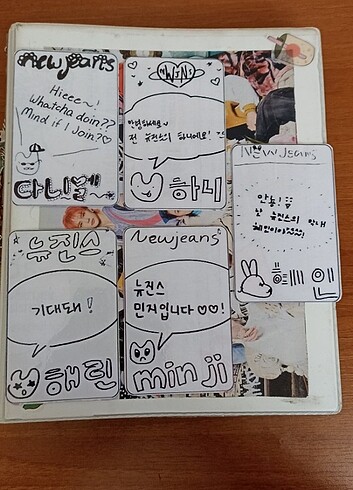 newjeans
Hieee~!
Whatcha doin??
Mind if I Join?♡
다니엘
NWJNS
안녕하세요~
전 뉴진스의 하니에요!
하니
NewJeans
안뇽!
난 뉴진스의 막내
혜인이야
혜인
뉴진스
기대돼!
해린
Newjeans
뉴진스
민지입니다♡♡!
minji